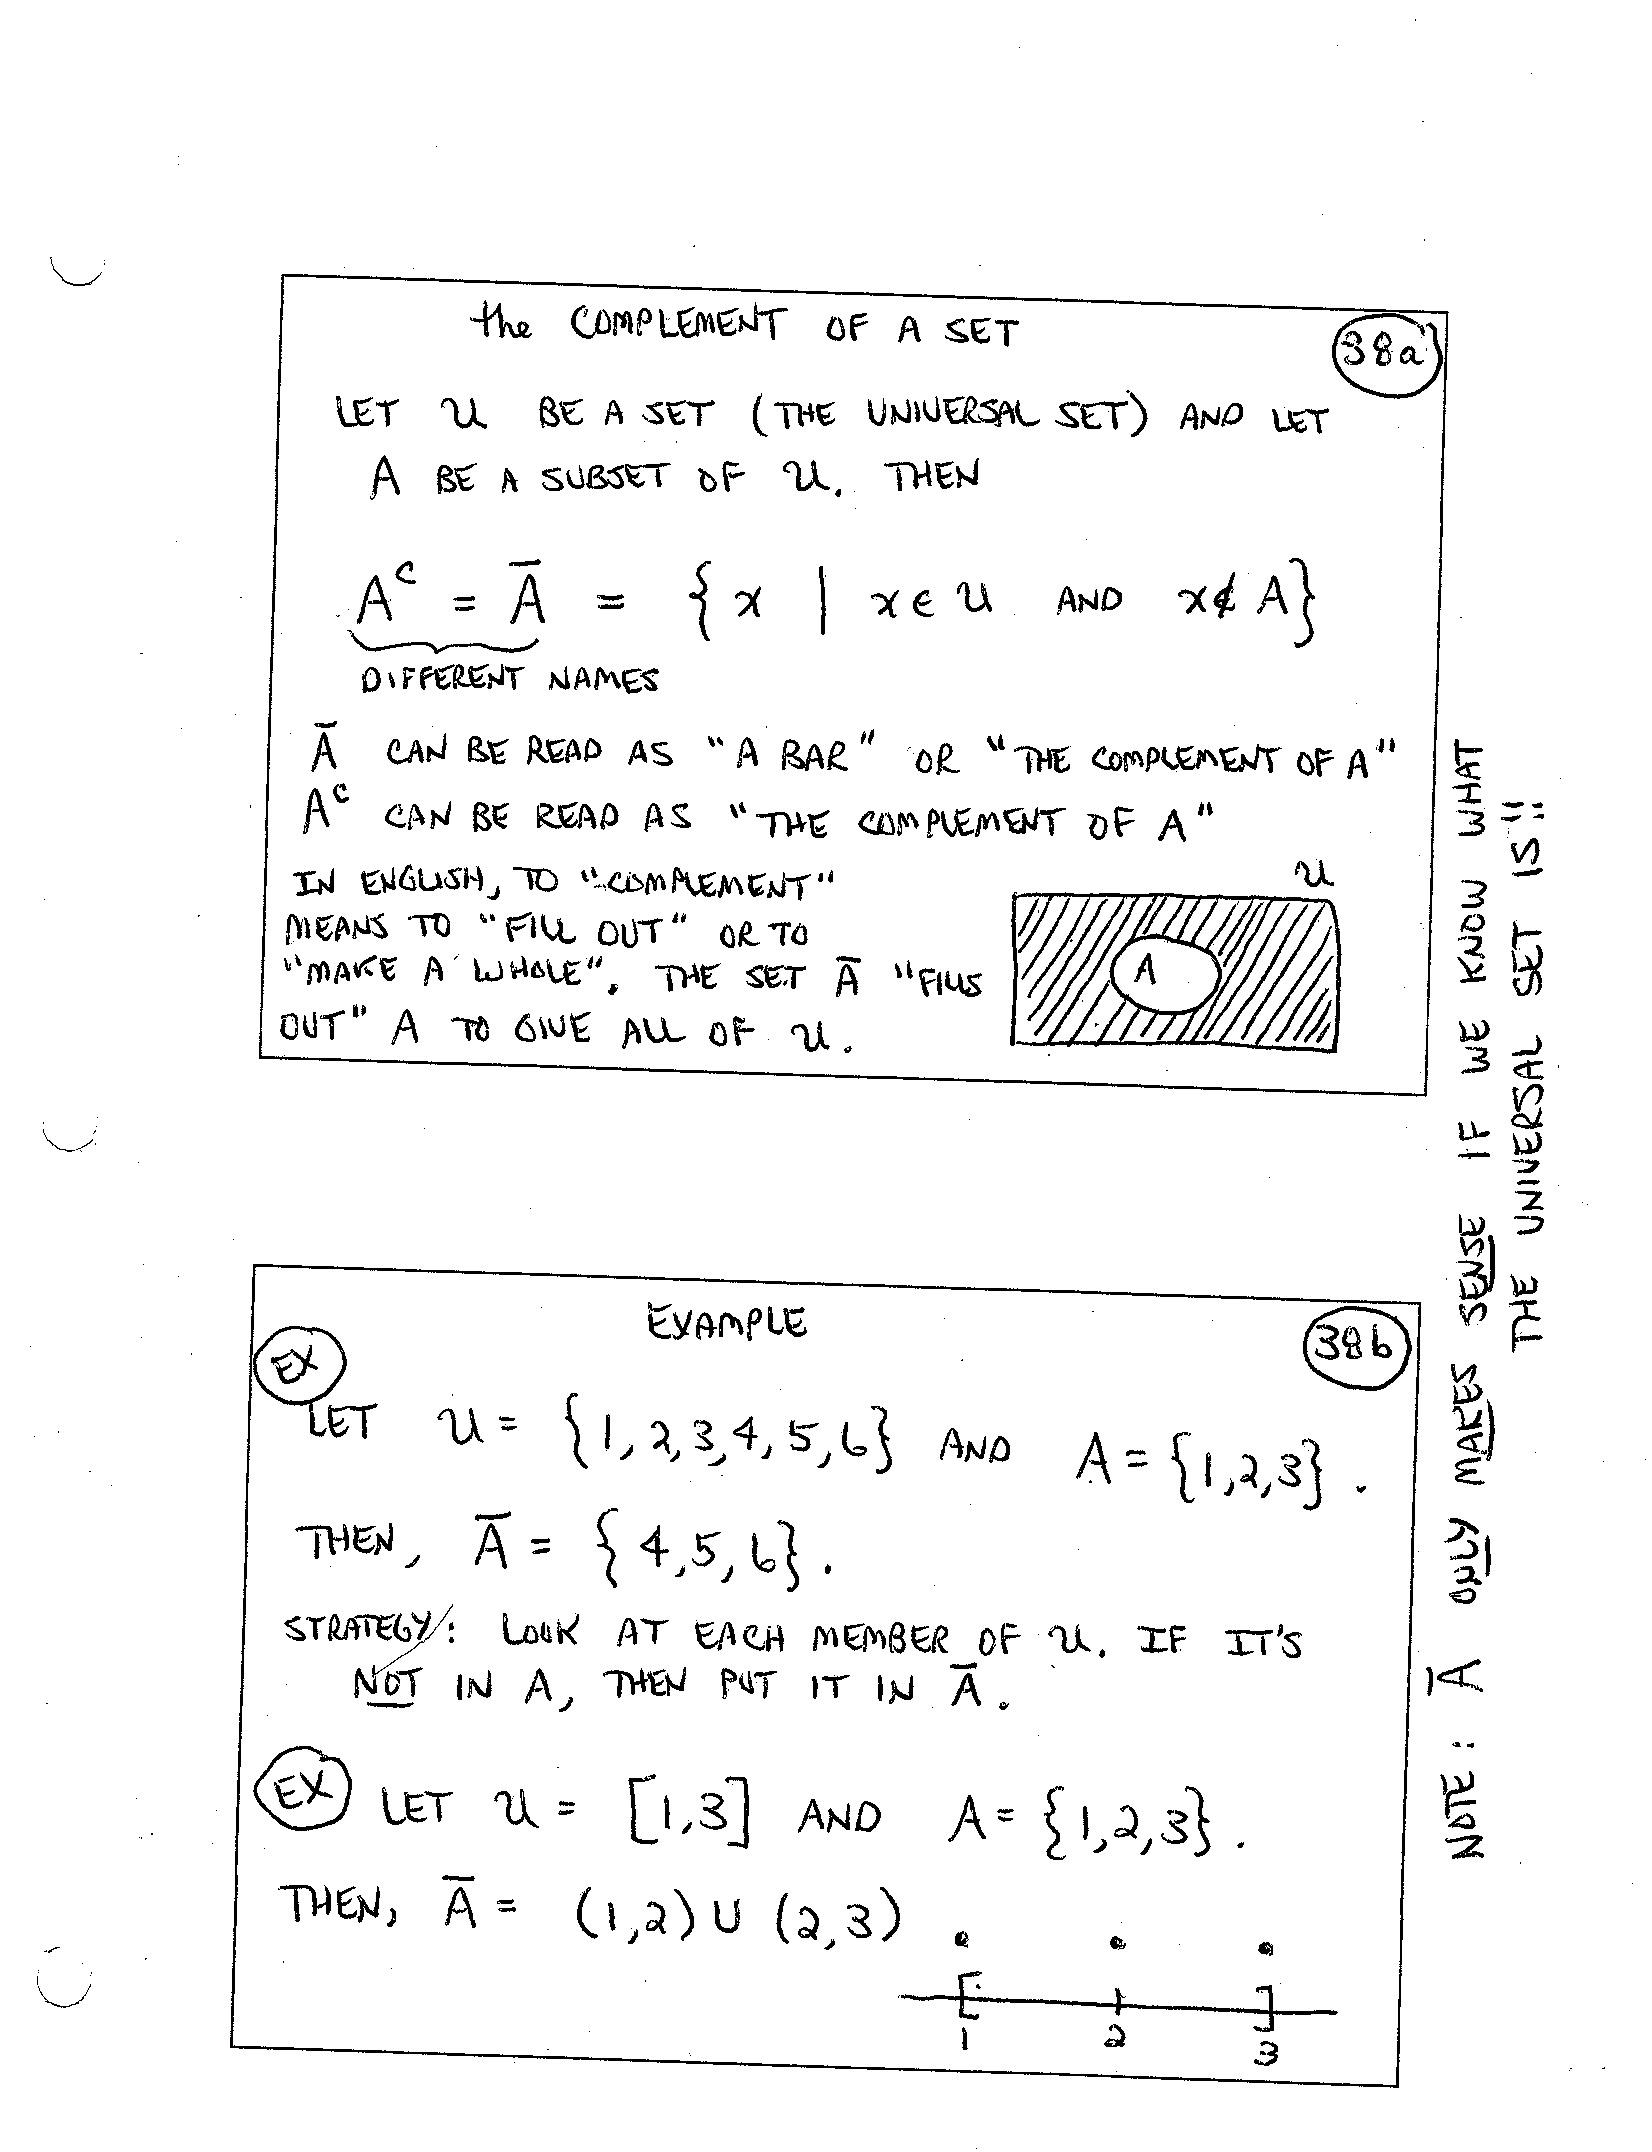 the COMPLEMENT OF A SET
38a
LET U BE A SET (THE UNIVERSAL SET) AND LET
A BE A SUBSET OF U. THEN
Aᶜ = Ā = { x | x ∈ U AND x ∉ A}
DIFFERENT NAMES
Ā CAN BE READ AS "A BAR" OR "THE COMPLEMENT OF A"
Aᶜ CAN BE READ AS "THE COMPLEMENT OF A"
IN ENGLISH, TO "COMPLEMENT"
MEANS TO "FILL OUT" OR TO
"MAKE A WHOLE". THE SET Ā "FILLS
OUT" A TO GIVE ALL OF U.
U
A
EXAMPLE
38b
EX
LET U = {1,2,3,4,5,6} AND A = {1,2,3}.
THEN, Ā = {4,5,6}.
STRATEGY: LOOK AT EACH MEMBER OF U. IF IT'S
NOT IN A, THEN PUT IT IN Ā.
EX LET U = [1,3] AND A = {1,2,3}.
THEN, Ā = (1,2) ∪ (2,3)
1 2 3
NOTE: Ā ONLY MAKES SENSE IF WE KNOW WHAT
THE UNIVERSAL SET IS!!